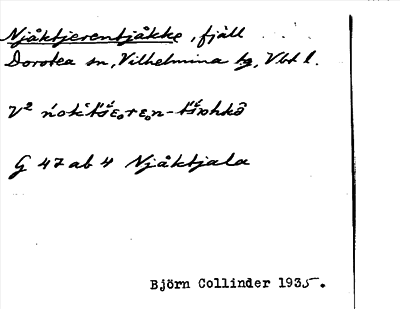 Njåktjerentjåkke, fjäll
Dorotea sn, Vilhelmina tg, Vbt l.
V²
G 47 ab 4 Njåktjala
Björn Collinder 1935.